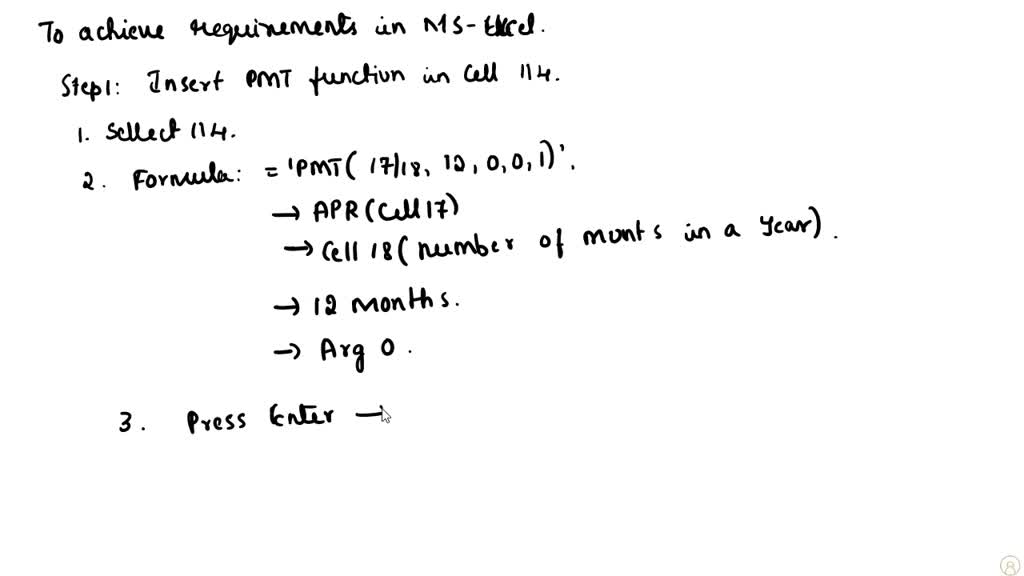 To achieve requirements in MS-Excel.
Step1: Insert PMT function in Cell 114.
1. Sellect 114.
2. Formula: = 'PMT( 17/18, 12, 0, 0, 1)'.
→ APR (Cell 17)
→ Cell 18 ( number of monts in a year).
→ 12 months.
→ Arg 0.
3. Press Enter →